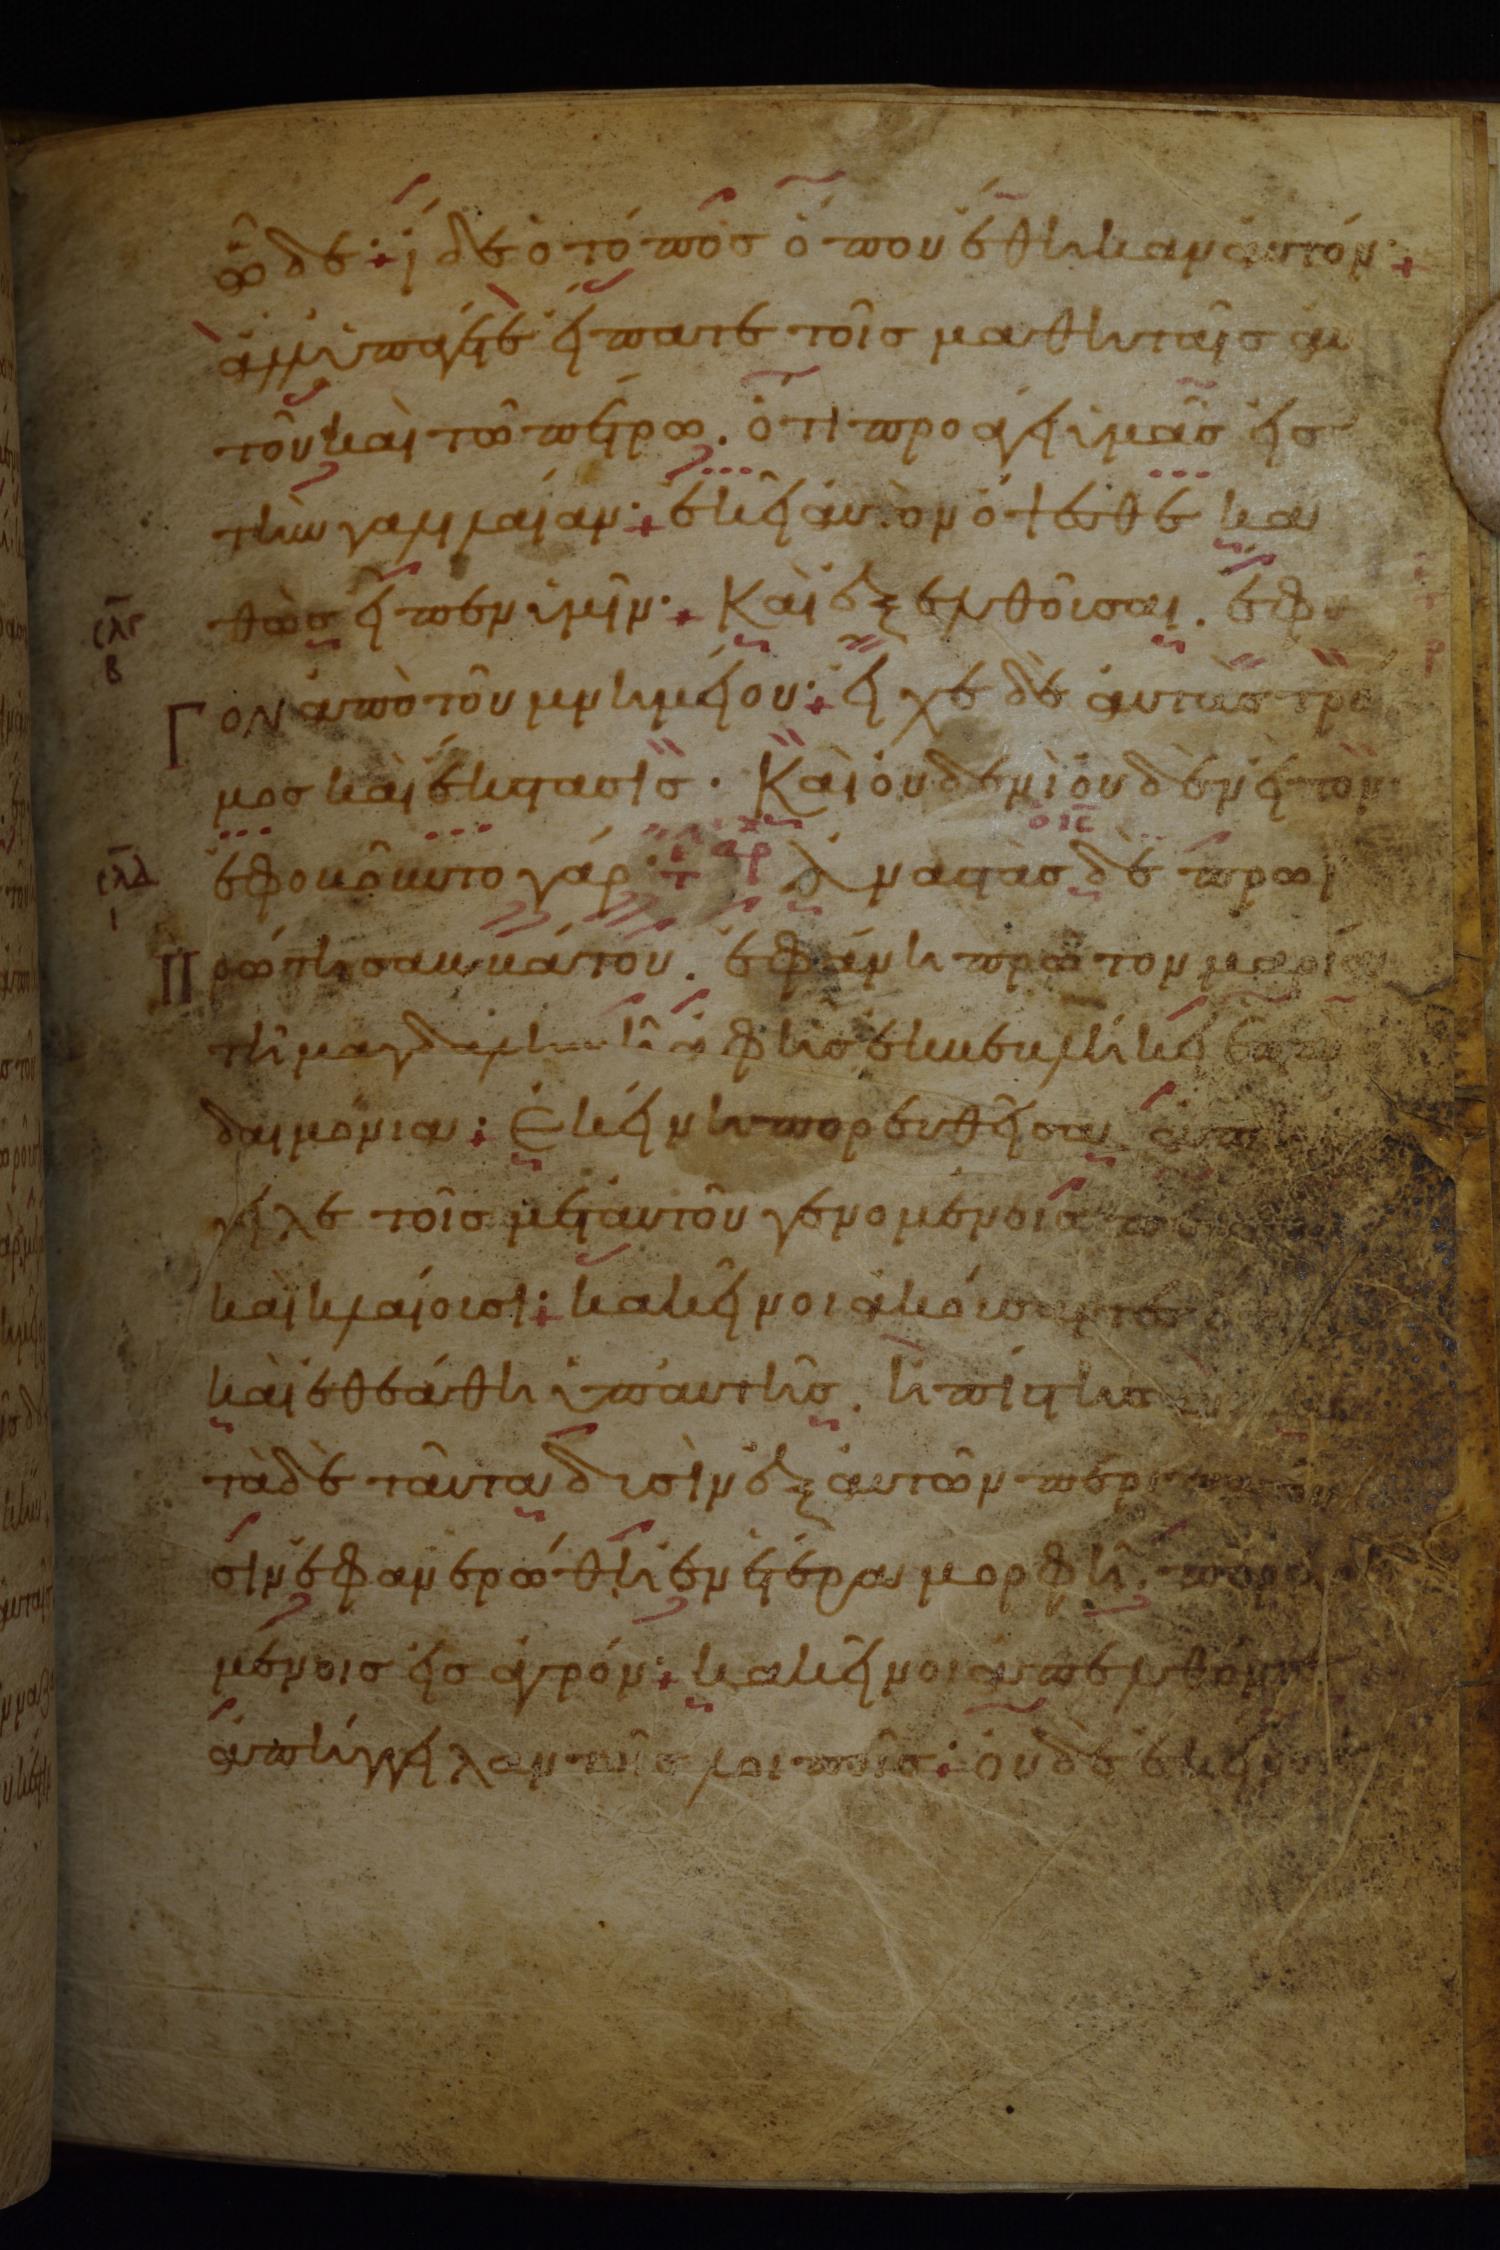 ὧδε· ἴδε ὁ τόπος ὅπου ἔθηκαν αὐτόν·
ἀλλ' ὑπάγετε εἴπατε τοῖς μαθηταῖς αυ
τοῦ καὶ τῶ πέτρω. ὅτι προάγει ὑμᾶς εἰς
τὴν γαλιλαίαν· ἐκεῖ αὐτὸν ὄψεσθε κα
θὼς εἶπεν ὑμῖν· Καὶ ἐξελθοῦσαι. ἔφυ
ϛλγ
β
Γον ἀπὸ τοῦ μνημείου· εἶχε δὲ αὐτὰς τρο
μος καὶ ἔκστασις. Καὶ οὐδενὶ οὐδὲν εἶπον
ϛλδ
ι
ἐφοβοῦντο γάρ· Ἀναστὰς δὲ πρωῒ
Πρώτη σαββάτου. ἐφάνη πρῶτον μαρία
τῆ μαγδαληνῆ ἀφ' ἧς ἐκβεβλήκει
δαιμόνια· Ἐκείνη πορευθεῖσα ἀπη
γειλε τοῖς μετ' αὐτοῦ γενομένοις
καὶ κλαίουσι· κακεῖνοι ἀκούσαντες
καὶ ἐθεάθη ὑπ' αὐτῆς. ἠπίστησ
τὰ δὲ ταῦτα δυσὶν ἐξ αὐτῶν περιπατοῦ
σιν ἐφανερώθη ἐν ἑτέρα μορφῆ. πορευ
μένοις εἰς ἀγρόν· κακεῖνοι ἀπελθόντες
ἀπήγγειλαν τοῖς λοιποῖς· οὐδὲ ἐκείνοις